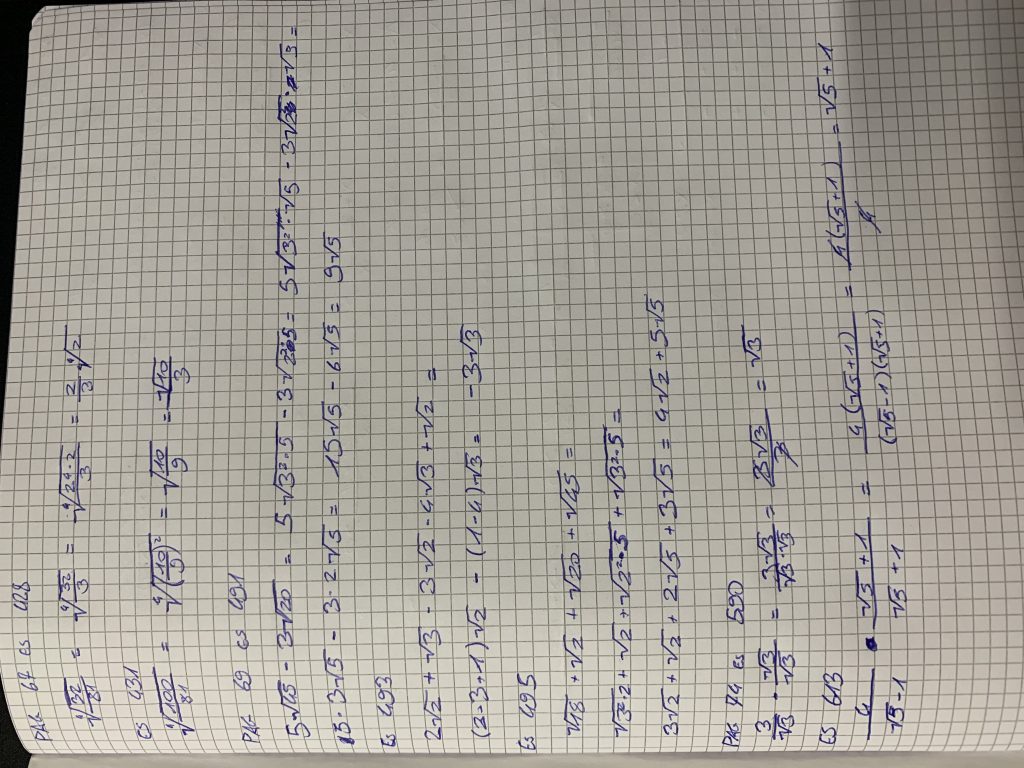 PAG 67 ES 428
⁴√(32/81) = ⁴√32/3 = ⁴√(2⁴·2)/3 = 2/3 ⁴√2
ES 431
⁴√(100/81) = ⁴√(10/9)² = √(10/9) = √10/3
PAG 69 ES 491
5√45 - 3√20 = 5√(3²·5) - 3√(2²·5) = 5√3²·√5 - 3√2²·√5 =
5·3√5 - 3·2√5 = 15√5 - 6√5 = 9√5
ES 493
2√2 + √3 - 3√2 - 4√3 + √2 =
(2-3+1)√2 - (1-4)√3 = -3√3
ES 495
√18 + √2 + √20 + √45 =
√(3²·2) + √2 + √(2²·5) + √(3²·5) =
3√2 + √2 + 2√5 + 3√5 = 4√2 + 5√5
PAG 74 ES 590
3/√3 · √3/√3 = 3√3/(√3·√3) = 3√3/3 = √3
ES 613
4/(√5-1) · (√5+1)/(√5+1) = 4(√5+1)/((√5-1)(√5+1)) = 4(√5+1)/4 = √5+1